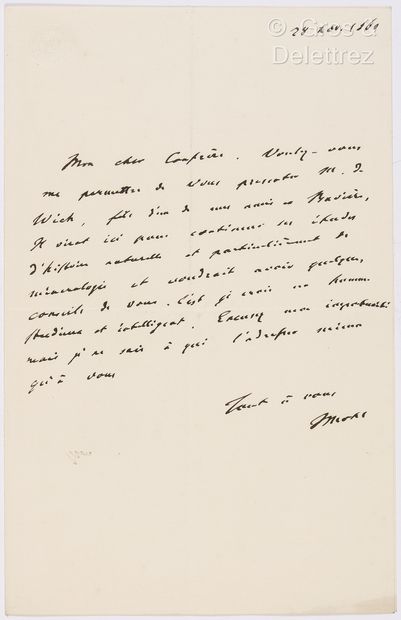 © Gros &
Delettrez
24 Nov. 1860
Mon cher Confrère. Voulez-vous
me permettre de vous présenter M. de
Wich, fils d'un de mes amis en Bavière,
Il vient ici pour continuer ses études
d'histoire naturelle et particulièrement de
minéralogie et voudrait avoir quelques
conseils de vous. C'est je crois un homme
studieux et intelligent. Excusez mon importunité
mais je ne sais à qui l'adresser mieux
qu'à vous
Tout à vous
Mohl